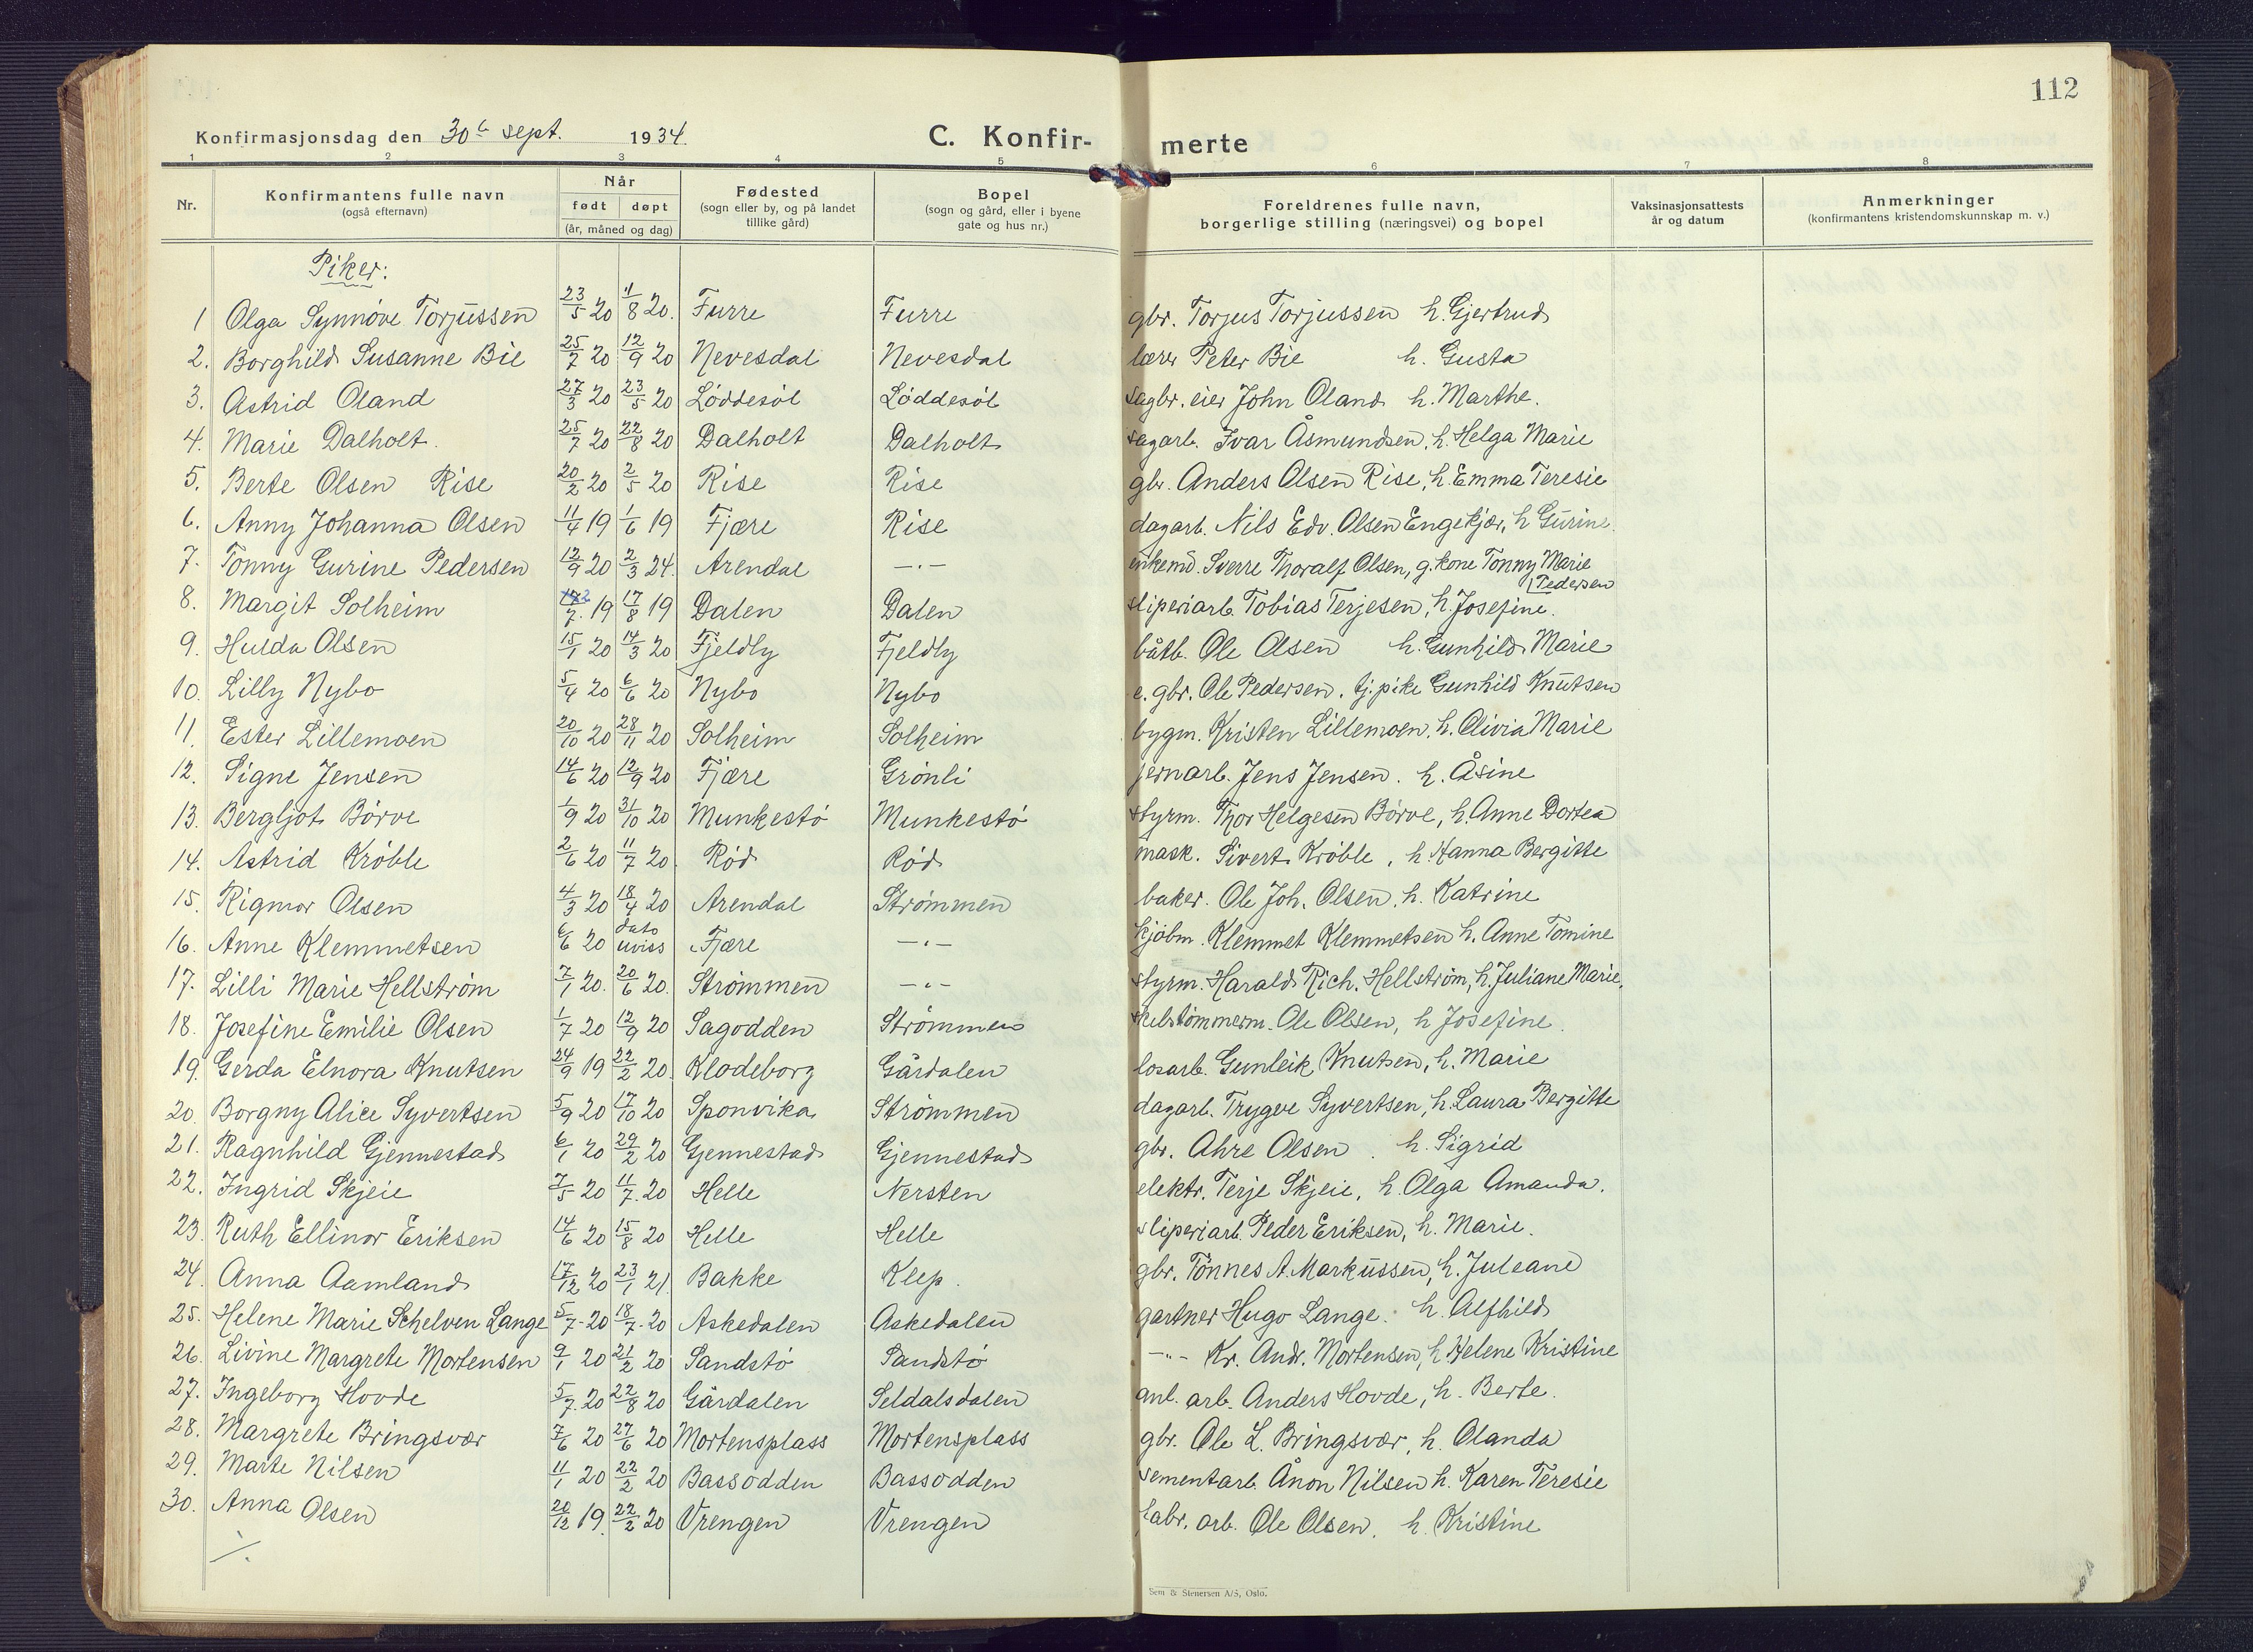 112
Konfirmasjonsdag den 30te sept. 1934. C. Konfir- merte
1 2 3 4 5 6 7 8
Nr. Konfirmantens fulle navn (også efternavn) Når født døpt (år, måned og dag) Fødested (sogn eller by, og på landet tillike gård) Bopel (sogn og gård, eller i byene gate og hus nr.) Foreldrenes fulle navn, borgerlige stilling (næringsvei) og bopel Vaksinasjonsattests år og datum Anmerkninger (konfirmantens kristendomskunnskap m. v.)
Piker:
1 Olga Synnøve Torjussen 23/5 20 11/8 20. Furre Furre gbr. Torjus Torjussen h. Gjertrud
2. Borghild Susanne Bie 25/7 20 12/9 20 Nevesdal Nevesdal lærer Peter Bie h. Gusta
3. Astrid Oland 27/3 20 23/5 20 Løddesøl Løddesøl sagbr. eier John Oland h. Marthe.
4. Marie Dalholt. 25/7 20 22/8 20 Dalholt Dalholt sagarb. Ivar Åsmundsen, h. Helga Marie
5. Berte Olsen Rise 20/2 20 2/5 20 Rise Rise gbr. Anders Olsen Rise, h. Emma Teresie
6. Anny Johanna Olsen 11/4 19 1/6 19 Fjære Rise dagarb. Nils Edv. Olsen Engekjær, h Gurine.
7. Tonny Gurine Pedersen 12/9 20 2/3 24. Arendal —.— enkemd. Sverre Thoralf Olsen, g. kone Tonny Marie Pedersen
8. Margit Solheim /7. 19 17/8 19 Dalen Dalen sliperiarb. Tobias Terjesen, h. Josefine.
9. Hulda Olsen 15/1 20 14/3 20 Fjeldly Fjeldly båtb. Ole Olsen h. Gunhild Marie
10. Lilly Nybo 5/4 20 6/6 20 Nybo Nybo e. gbr. Ole Pedersen, tj. pike Gunhild Knutsen
11. Ester Lillemoen 20/10 20 28/11 20 Solheim Solheim bygm. Kristen Lillemoen, h. Olivia Marie
12. Signe Jensen 14/6 20 12/9 20 Fjære Grönli jernarb. Jens Jensen. h. Åsine
13. Bergljot Börve 1/9 20 31/10 20 Munkestö Munkestö styrm. Thor Helgesen Börve, h. Anne Dortea
14. Astrid Kröble 2/6 20 11/7 20. Rød Rød mask. Sivert Kröble, h. Hanna Bergitte
15. Rigmor Olsen 4/3 20 18/4 20 Arendal Strømmen baker. Ole Joh. Olsen, h. Katrine
16. Anne Klemmetsen 6/6 20 dato uviss Fjære —.— kjöbm. Klemmet Klemmetsen h. Anne Tomine
17. Lilli Marie Hellström 7/1 20. 20/6 20. Strømmen —.— styrm. Harald Rich. Hellström, h. Juliane Marie.
18. Josefine Emilie Olsen 1/7 20 12/9 20 Sagodden Strømmen Ole Olsen, h Josefine.
19. Gerda Elnora Knutsen 24/9 19 22/2 20. Klodeborg Gårdalen losarb. Gunleik Knutsen, h. Marie
20. Borgny Alice Syvertsen 5/9 20 17/10 20 Sponvika Strømmen dagarb. Trygve Syvertsen, h. Laura Bergitte
21. Ragnhild Gjennestad 6/1 20 29/2 20 Gjennestad Gjennestad gbr. Ahre Olsen. h. Sigrid
22. Ingrid Skjeie 7/5 20 11/7. 20 Helle Nersten elektr. Terje Skjeie, h. Olga Amanda.
23. Ruth Ellinor Eriksen 14/6 20 15/8 20 Helle Helle sliperiarb. Peder Eriksen, h. Marie.
24. Anna Aamland 17/12 20 23/1 21. Bakke Klep. gbr. Tönnes A. Markussen, h. Juleane
25. Helene Marie Schelven Lange 5/7-20 18/7-20 Askedalen Askedalen gartner Hugo Lange. h. Alfhild
26. Livine Margrete Mortensen 9/1 20 21/2 20 Sandstö Sandstö —"— Kr. Andr. Mortensen, h. Helene Kristine
27. Ingeborg Hovde 5/7. 20 22/8 20 Gårdalen Seldalsdalen anl. arb. Anders Hovde, h. Berte.
28. Margrete Bringsvær 7/6 20 27/6 20 Mortensplass Mortensplass gbr. Ole L. Bringsvær, h. Olanda
29. Marte Nilsen 11/1 20 22/2 20 Bassodden Bassodden sementarb. Ånon Nilsen h. Karen Teresie
30. Anna Olsen 20/12 19. 22/2 20 Vrengen Vrengen fabr. arb. Ole Olsen. h. Kristine
Sem & Stenersen A/S, Oslo.